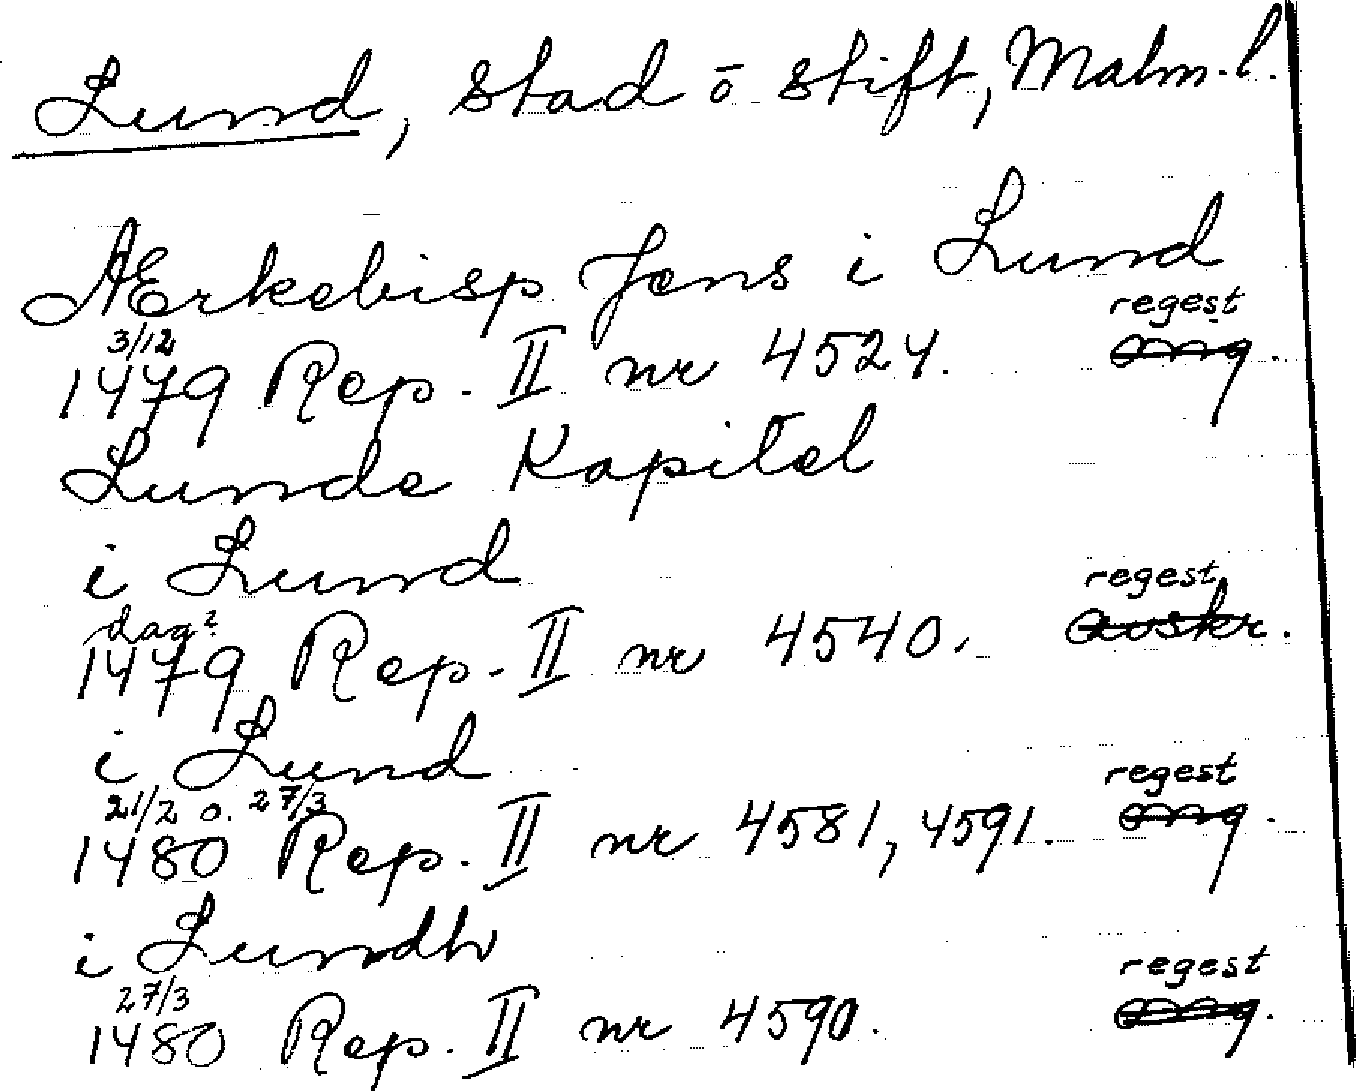 Lund, stad ō stift, Malm.l.
Ærkebisp Jens i Lund
3/12 regest
1479 Rep. II nr 4524. omg.
Lunde Kapitel
i Lund
dag? regest
1479 Rep. II nr 4540. avskr.
i Lund
21/2 o. 27/3 regest
1480 Rep. II nr 4581, 4591. omg.
i Lundh
27/3 regest
1480 Rep. II nr 4590. omg.